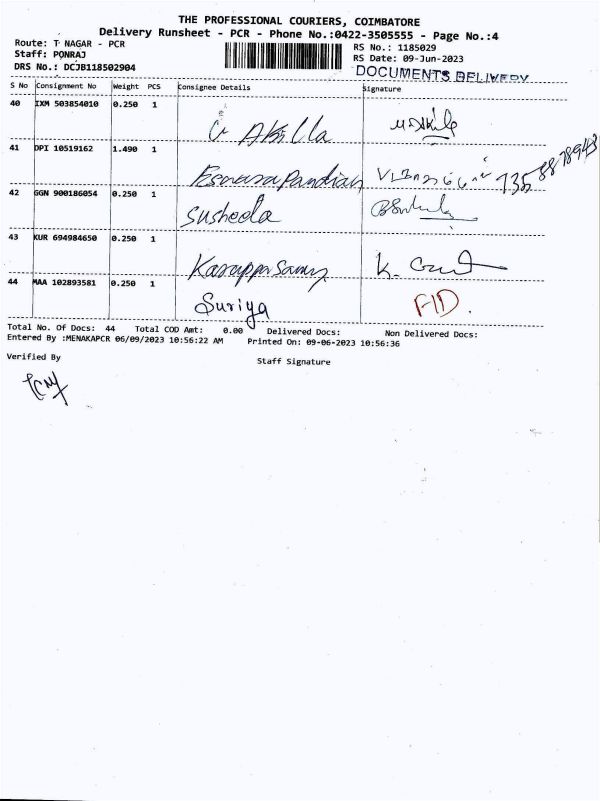 THE PROFESSIONAL COURIERS, COIMBATORE
Delivery Runsheet - PCR - Phone No.:0422-3505555 - Page No.:4
Route: T NAGAR - PCR
Staff: PONRAJ
DRS No.: DCJB118502904
RS No.: 1185029
RS Date: 09-Jun-2023
DOCUMENTS DELIVERY
S No Consignment No Weight PCS Consignee Details Signature
40 IXM 503854010 0.250 1
Akilla
41 DPI 10519162 1.490 1
42 GGN 900186054 0.250 1
Susheela
43 KUR 694984650 0.250 1
Karuppusamy K.
44 MAA 102893581 0.250 1
Suriya FID.
Total No. Of Docs: 44 Total COD Amt: 0.00 Delivered Docs: Non Delivered Docs:
Entered By :MENAKAPCR 06/09/2023 10:56:22 AM Printed On: 09-06-2023 10:56:36
Verified By Staff Signature